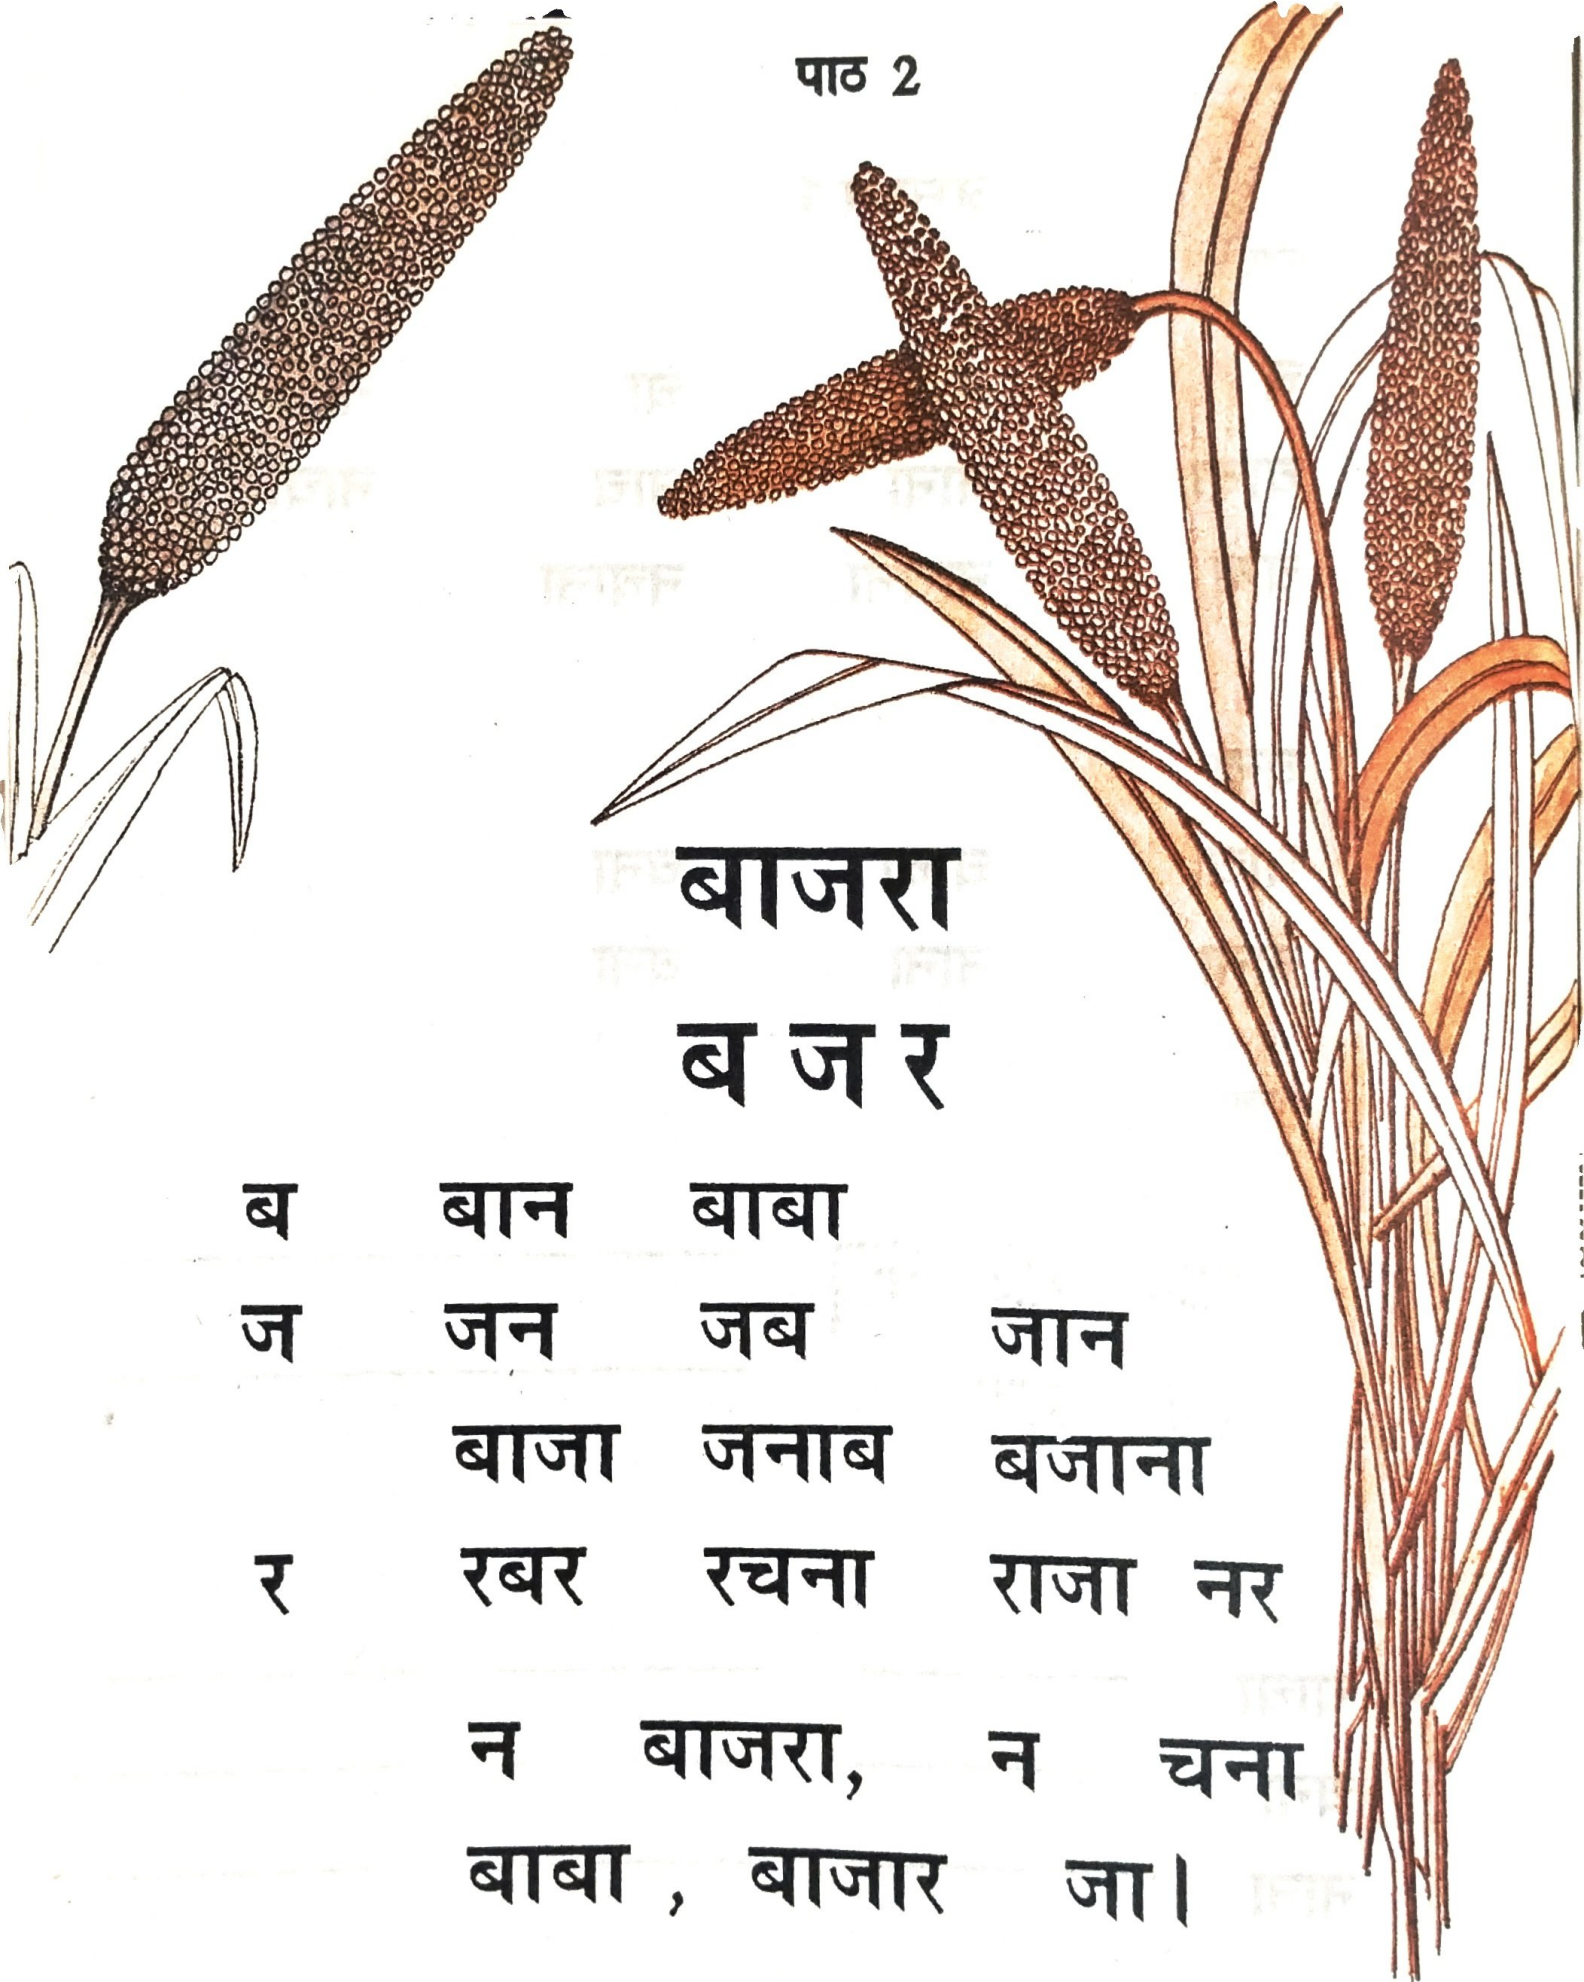 पाठ 2
बाजरा
ब ज र
ब बान बाबा
ज जन जब जान
बाजा जनाब बजाना
र रबर रचना राजा नर
न बाजरा, न चना
बाबा , बाजार जा।